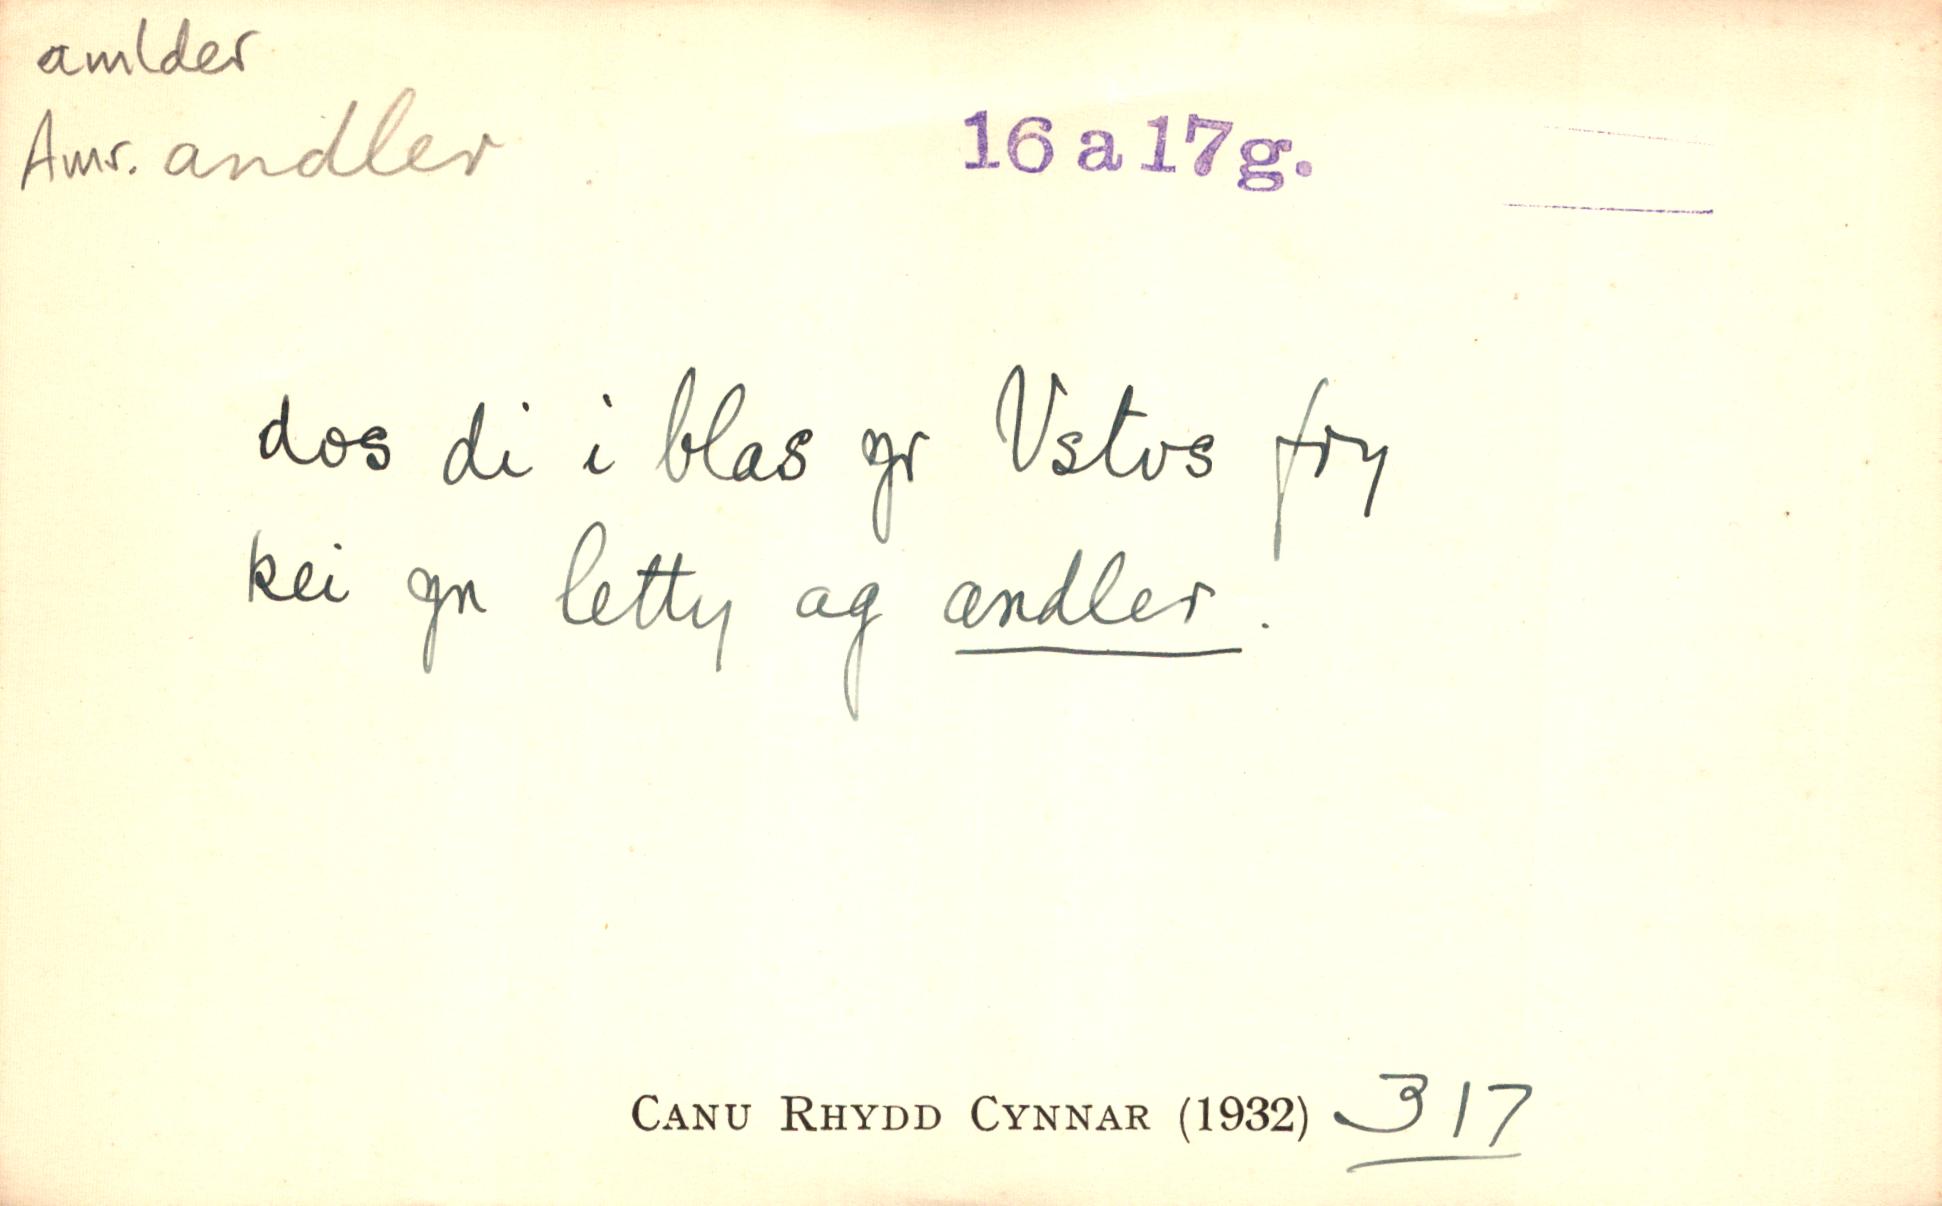 amlder
Amr. andler
16 a 17g.
dos di i blas yr Vstvs fry
kei yn letty ag andler.
CANU RHYDD CYNNAR (1932) 317